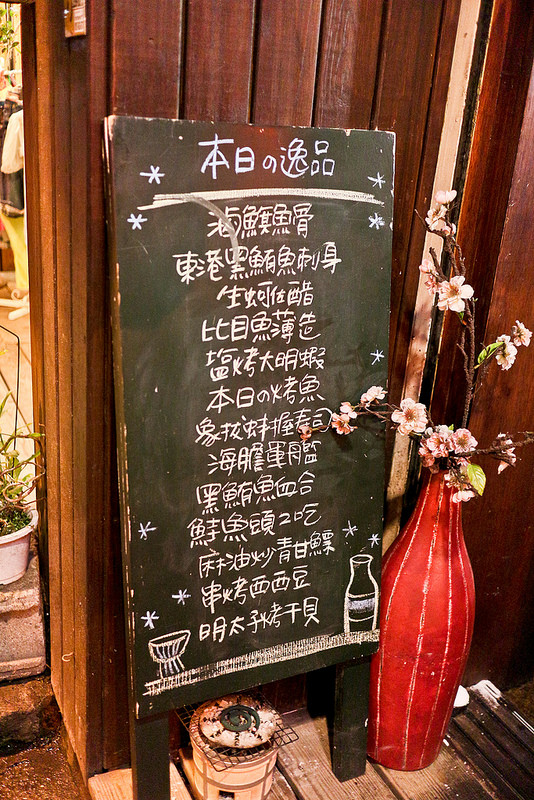 本日の逸品
滷鱘魚骨
東港黑鮪魚刺身
生蚵佐醋
比目魚薄造
塩烤大明蝦
本日の烤魚
象拔蚌握壽司
海膽軍艦
黑鮪魚血合
鮭魚頭2吃
麻油炒青甘鰾
串烤西西豆
明太子烤干貝